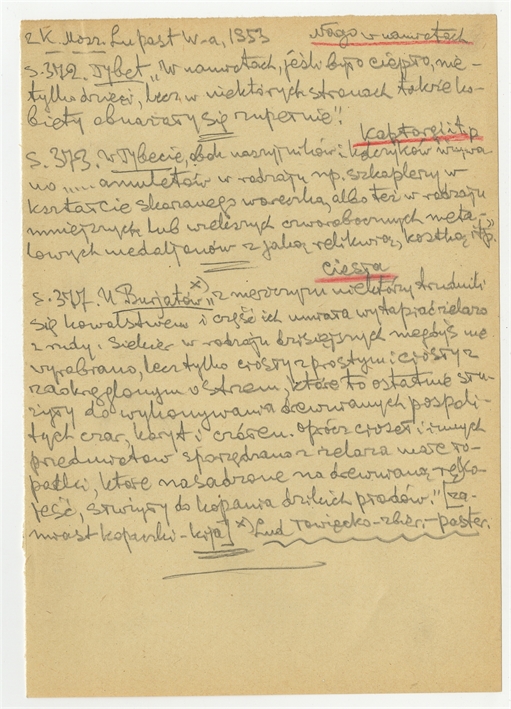 z K. Mosz. Lu past W-a, 1953 Nago w namiotach
s. 372. Tybet „W namiotach, jeśli było ciepło, nie-
tylko dzieci, lecz w niektórych stronach także ko-
biety obnażały się zupełnie".
Kaptorgi itp
s. 373. W Tybecie, obok naszyjników i kolczyków używa
no „... amuletów w rodzaju np. szkaplerzy w
kształcie skórzanego woreczka, albo też w rodzaju
mniejszych lub większych czworobocznych meta-
lowych medaljonów z jakąś relikwią, kostką itp."
ciesła
s. 377. U Buriatów x) „z mężczyzn niektórzy trudnili
się kowalstwem i część ich umiała wytapiać żelazo
z rudy. Siekier w rodzaju dzisiejszych niegdyś nie
wyrabiano, lecz tylko ciosły z prostym i ciosły z
zaokrąglonym ostrzem, które to ostatnie słu-
żyły do wykonywania drewnianych pospoli-
tych czar, koryt i czółen. Oprócz cioseł i innych
przedmiotów sporządzano z żelaza małe ło-
patki, które nasadzone na drewnianą ręko-
jeść, służyły do kopania dzikich płodów." [za-
miast kopaczki-kija] x) Lud łowiecko-zbier.-paster.